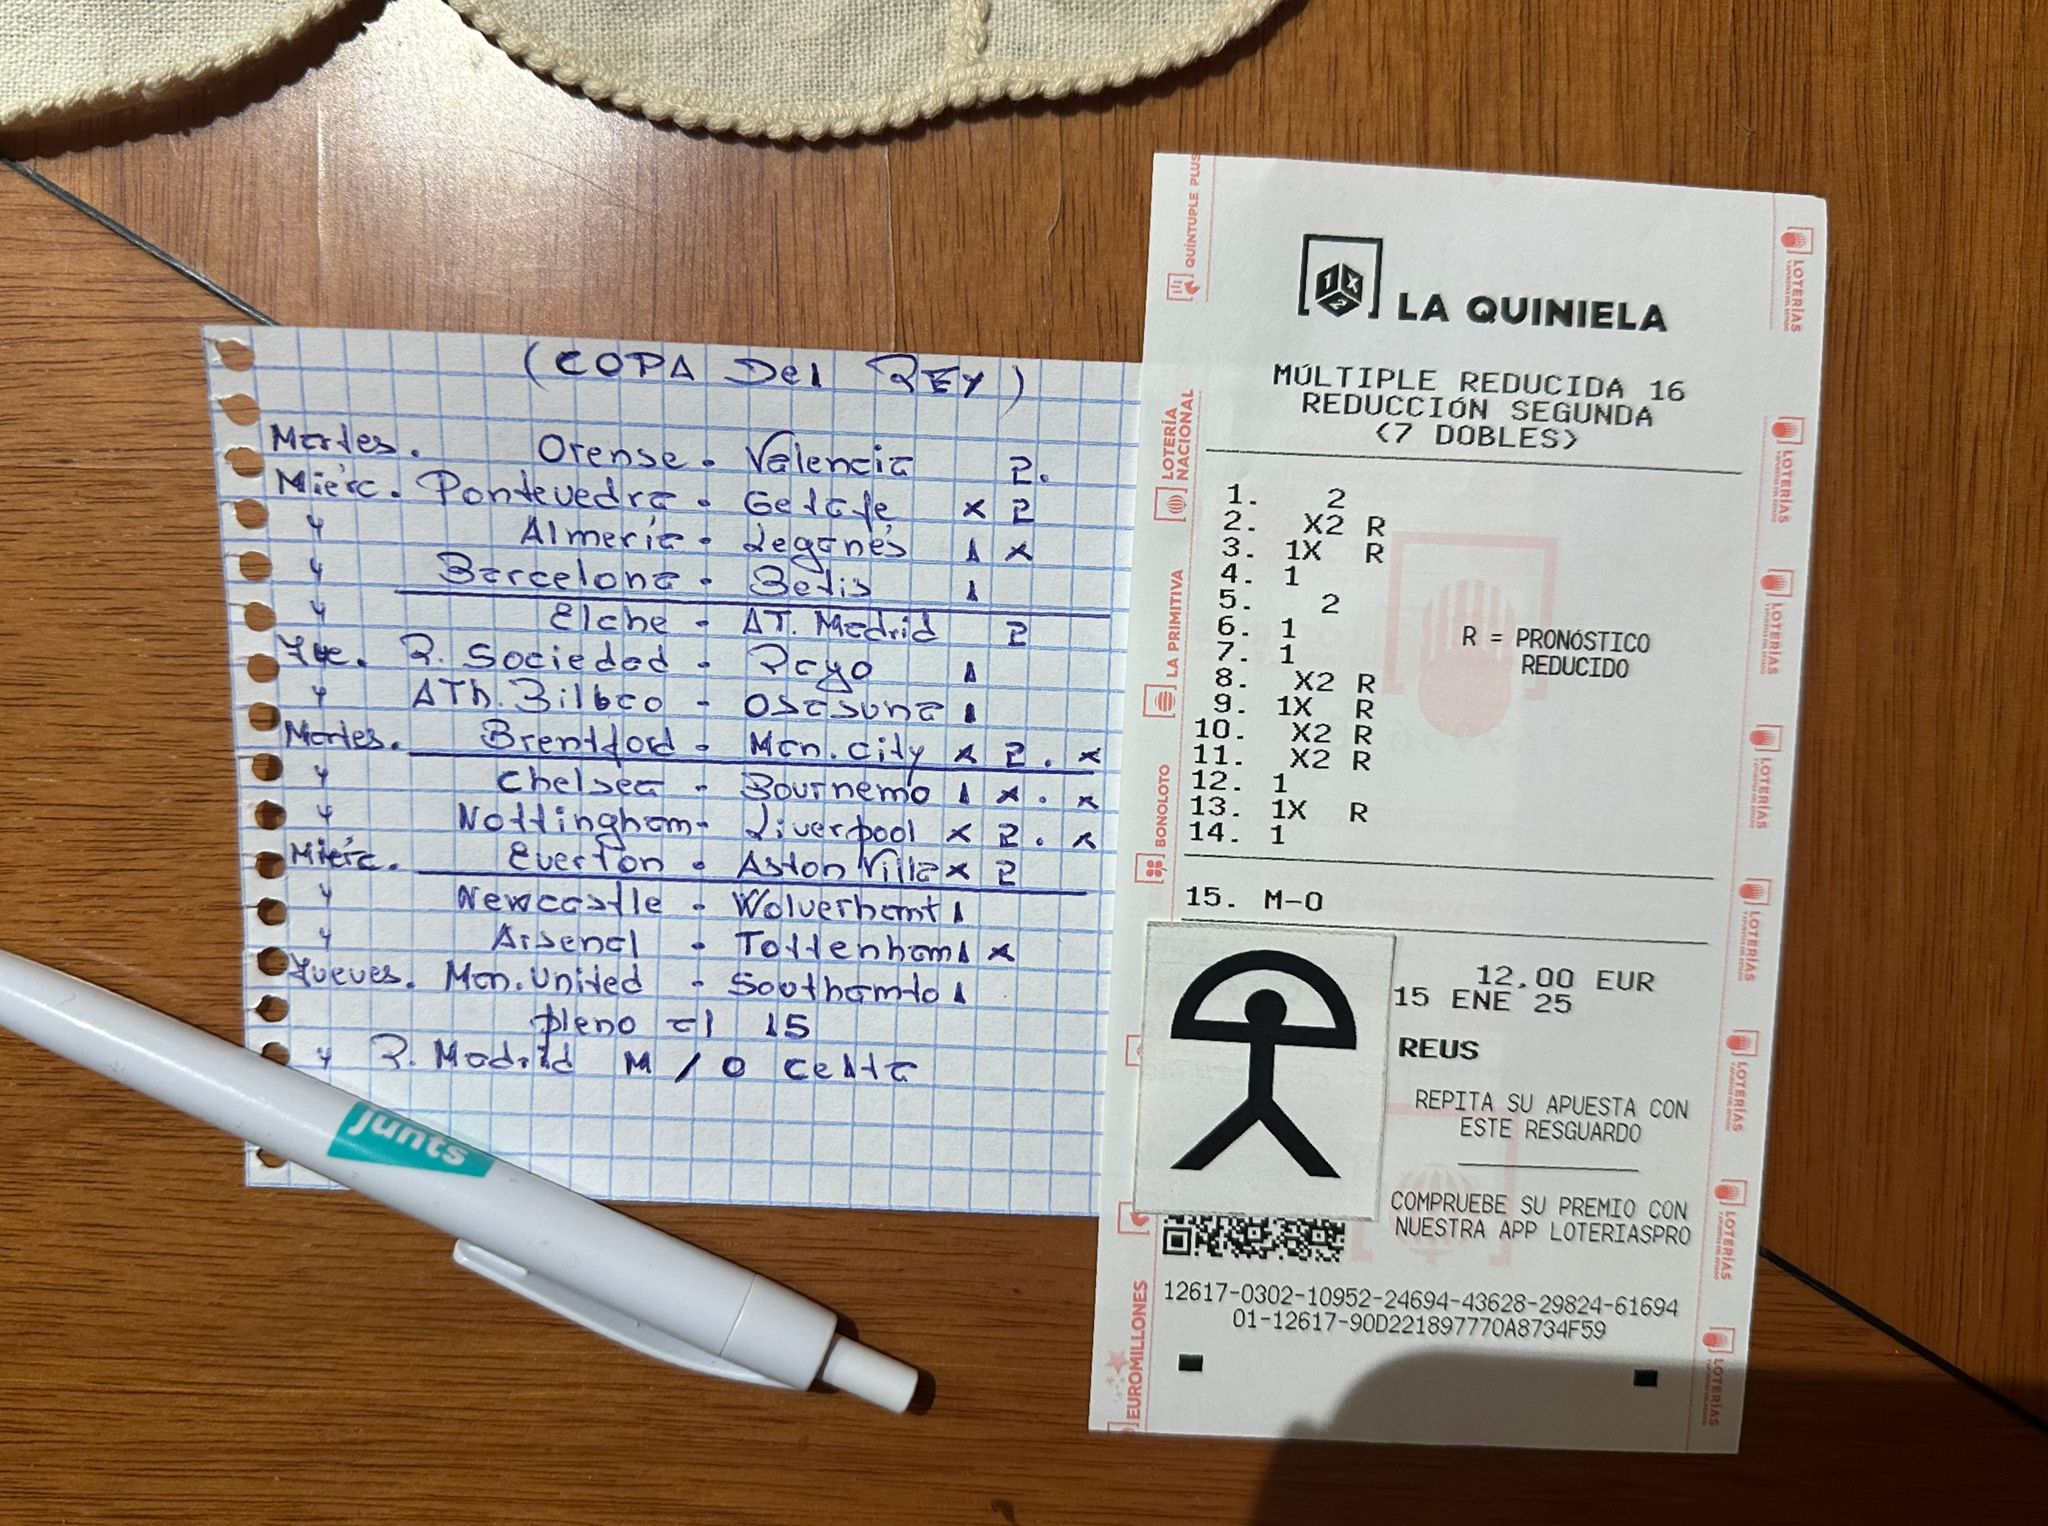 (COPA Del REY)
Martes. Orense - Valencia 2.
Mierc. Pontevedra - Getafe x 2
" Almería - Leganés 1 x
" Barcelona - Betis 1
" Elche - AT. Madrid 2
Jue. R. Sociedad - Rayo 1
" ATh. Bilbao - Osasuna 1
Martes. Brentford - Man. city x 2 . x
" Chelsea - Bournemo 1 x . x
" Nottingham - Liverpool x 2 . x
Mierc. Everton - Aston Villa x 2
" Newcastle - Wolverhamt 1
" Arsenal - Tottenham 1 x
Jueves. Man. United - Southamto 1
pleno al 15
" R. Madrid M / 0 Celta
junts
LA QUINIELA
MÚLTIPLE REDUCIDA 16
REDUCCIÓN SEGUNDA
(7 DOBLES)
1. 2
2. X2 R
3. 1X R
4. 1
5. 2
6. 1
7. 1
8. X2 R
9. 1X R
10. X2 R
11. X2 R
12. 1
13. 1X R
14. 1
R = PRONÓSTICO
REDUCIDO
15. M-0
12,00 EUR
15 ENE 25
REUS
REPITA SU APUESTA CON
ESTE RESGUARDO
COMPRUEBE SU PREMIO CON
NUESTRA APP LOTERIASPRO
12617-0302-10952-24694-43628-29824-61694
01-12617-90D221897770A8734F59
QUÍNTUPLE PLUS
LOTERÍA
NACIONAL
LA PRIMITIVA
BONOLOTO
EUROMILLONES
LOTERÍAS
LOTERÍAS
LOTERÍAS
LOTERÍAS
LOTERÍAS
LOTERÍAS
LOTERÍAS
LOTERÍAS